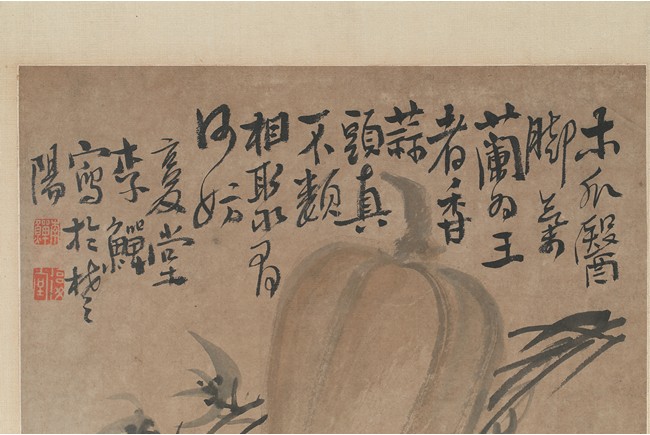 木瓜醫
腳氣
蘭為王
者香
蒜
頭真
不類
相聚有
何妨
复堂
李鱓
寫於楚
陽